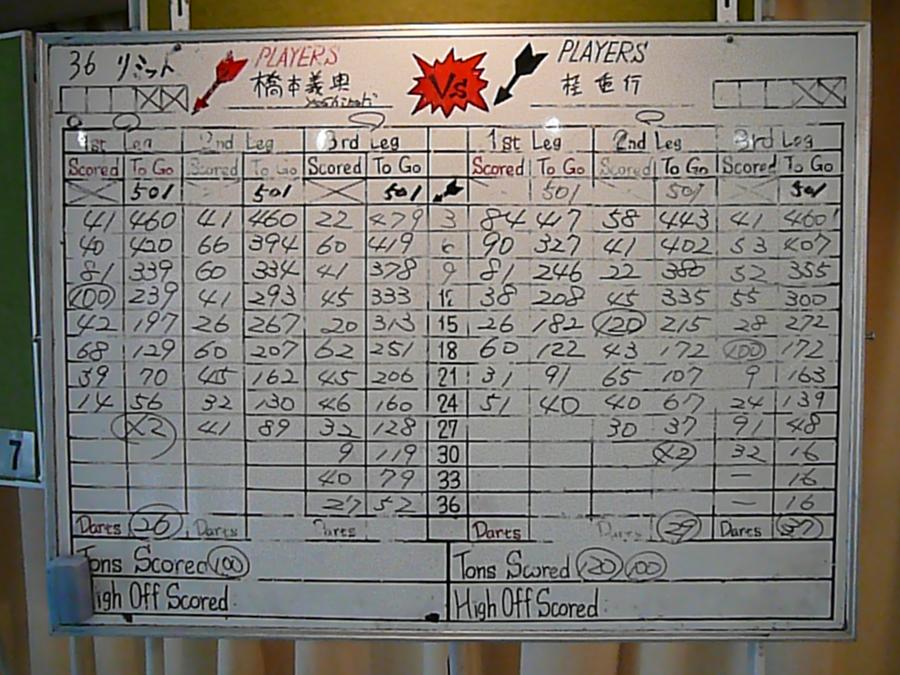 36 リミット
PLAYERS Vs PLAYERS
橋本義典 桂 重行
1st Leg 2nd Leg 3rd Leg 1st Leg 2nd Leg 3rd Leg
Scored To Go Scored To Go Scored To Go Scored To Go Scored To Go Scored To Go
501 501 501 501 501 501
41 460 41 460 22 479 3 84 417 58 443 41 460
40 420 66 394 60 419 6 90 327 41 402 53 407
81 339 60 334 41 378 9 81 246 22 380 52 355
100 239 41 293 45 333 12 38 208 45 335 55 300
42 197 26 267 20 313 15 26 182 120 215 28 272
68 129 60 207 62 251 18 60 122 43 172 100 172
39 70 45 162 45 206 21 31 91 65 107 9 163
14 56 32 130 46 160 24 51 40 40 67 24 139
X2 41 89 32 128 27 30 37 91 48
9 119 30 X2 32 16
40 79 33 — 16
27 52 36 — 16
Darts 26 Darts Darts Darts Darts 29 Darts 37
Tons Scored 100 Tons Scored 120 100
High Off Scored High Off Scored
7